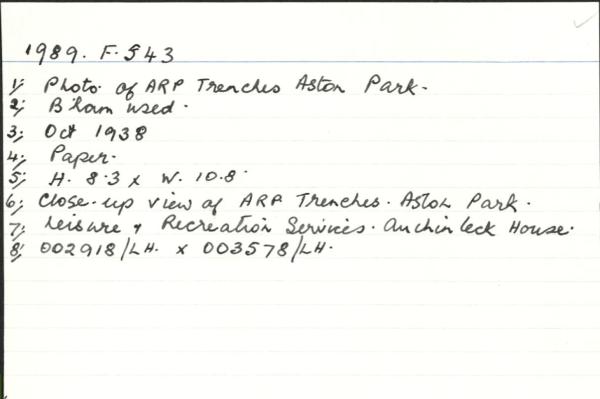 1989. F. 543
1; Photo of ARP Trenches Aston Park.
2; B'ham used.
3; Oct 1938
4; Paper.
5; H. 8.3 x W. 10.8
6; Close-up view of ARP Trenches. Aston Park.
7; Leisure & Recreation Services. Auchinleck House.
8; 002918/LH. x 003578/LH.